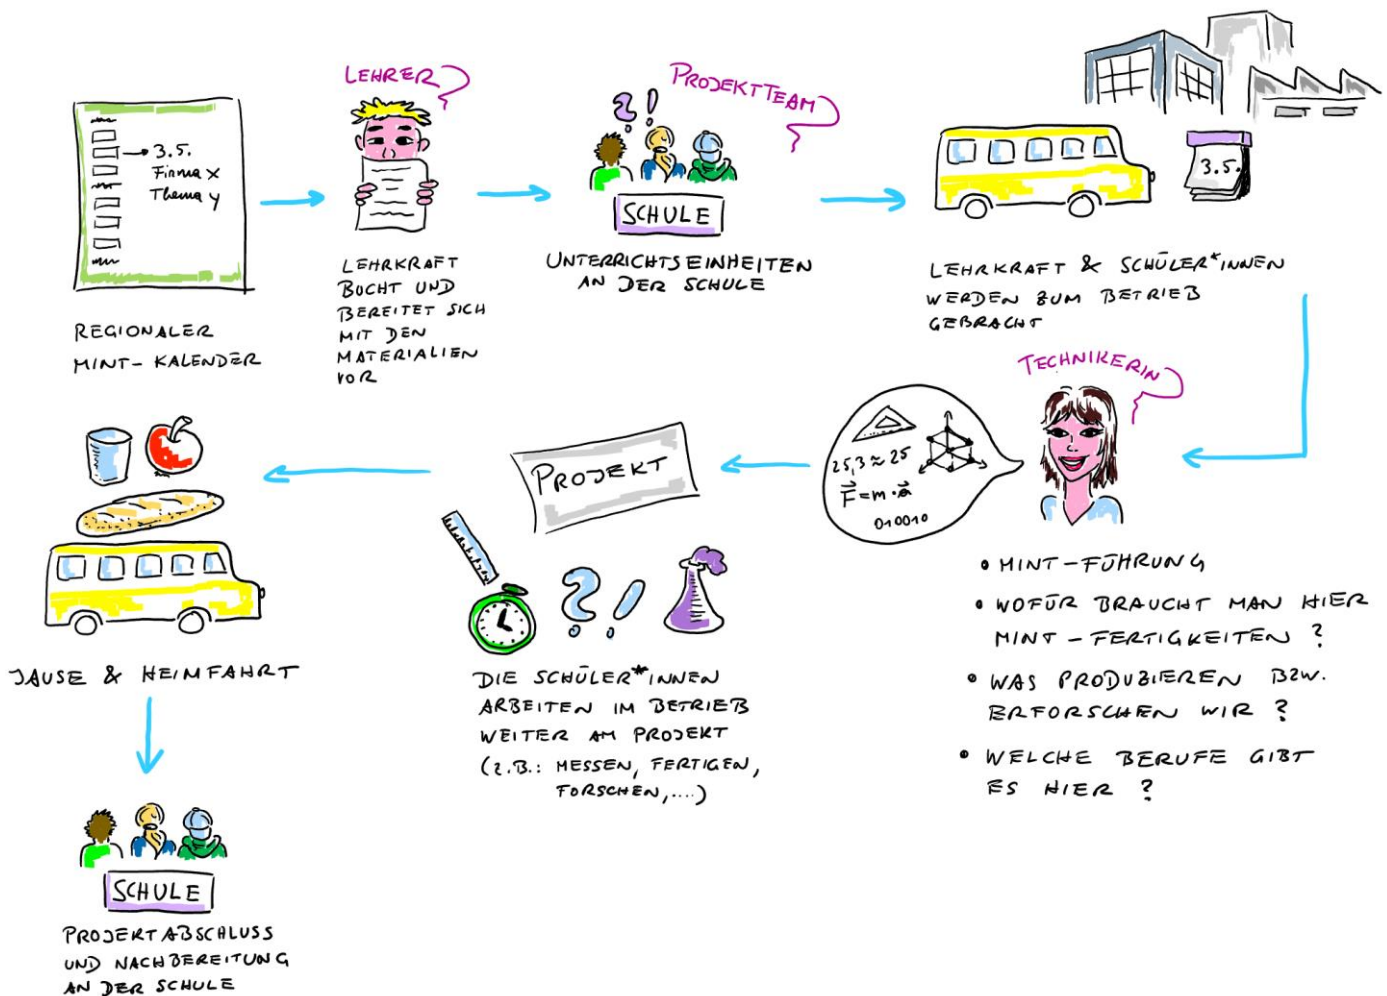 3.5.
Firma X
Thema Y
REGIONALER
MINT-KALENDER
LEHRER
LEHRKRAFT
BUCHT UND
BEREITET SICH
MIT DEN
MATERIALIEN
VOR
PROJEKTTEAM
?!
SCHULE
UNTERRICHTSEINHEITEN
AN DER SCHULE
3.5.
LEHRKRAFT & SCHÜLER*INNEN
WERDEN ZUM BETRIEB
GEBRACHT
TECHNIKERIN
25,3 ≈ 25
F⃗ = m · a⃗
010010
• MINT-FÜHRUNG
• WOFÜR BRAUCHT MAN HIER
MINT-FERTIGKEITEN ?
• WAS PRODUZIEREN BZW.
ERFORSCHEN WIR ?
• WELCHE BERUFE GIBT
ES HIER ?
PROJEKT
?!
DIE SCHÜLER*INNEN
ARBEITEN IM BETRIEB
WEITER AM PROJEKT
(Z.B.: MESSEN, FERTIGEN,
FORSCHEN,....)
JAUSE & HEIMFAHRT
SCHULE
PROJEKTABSCHLUSS
UND NACHBEREITUNG
AN DER SCHULE